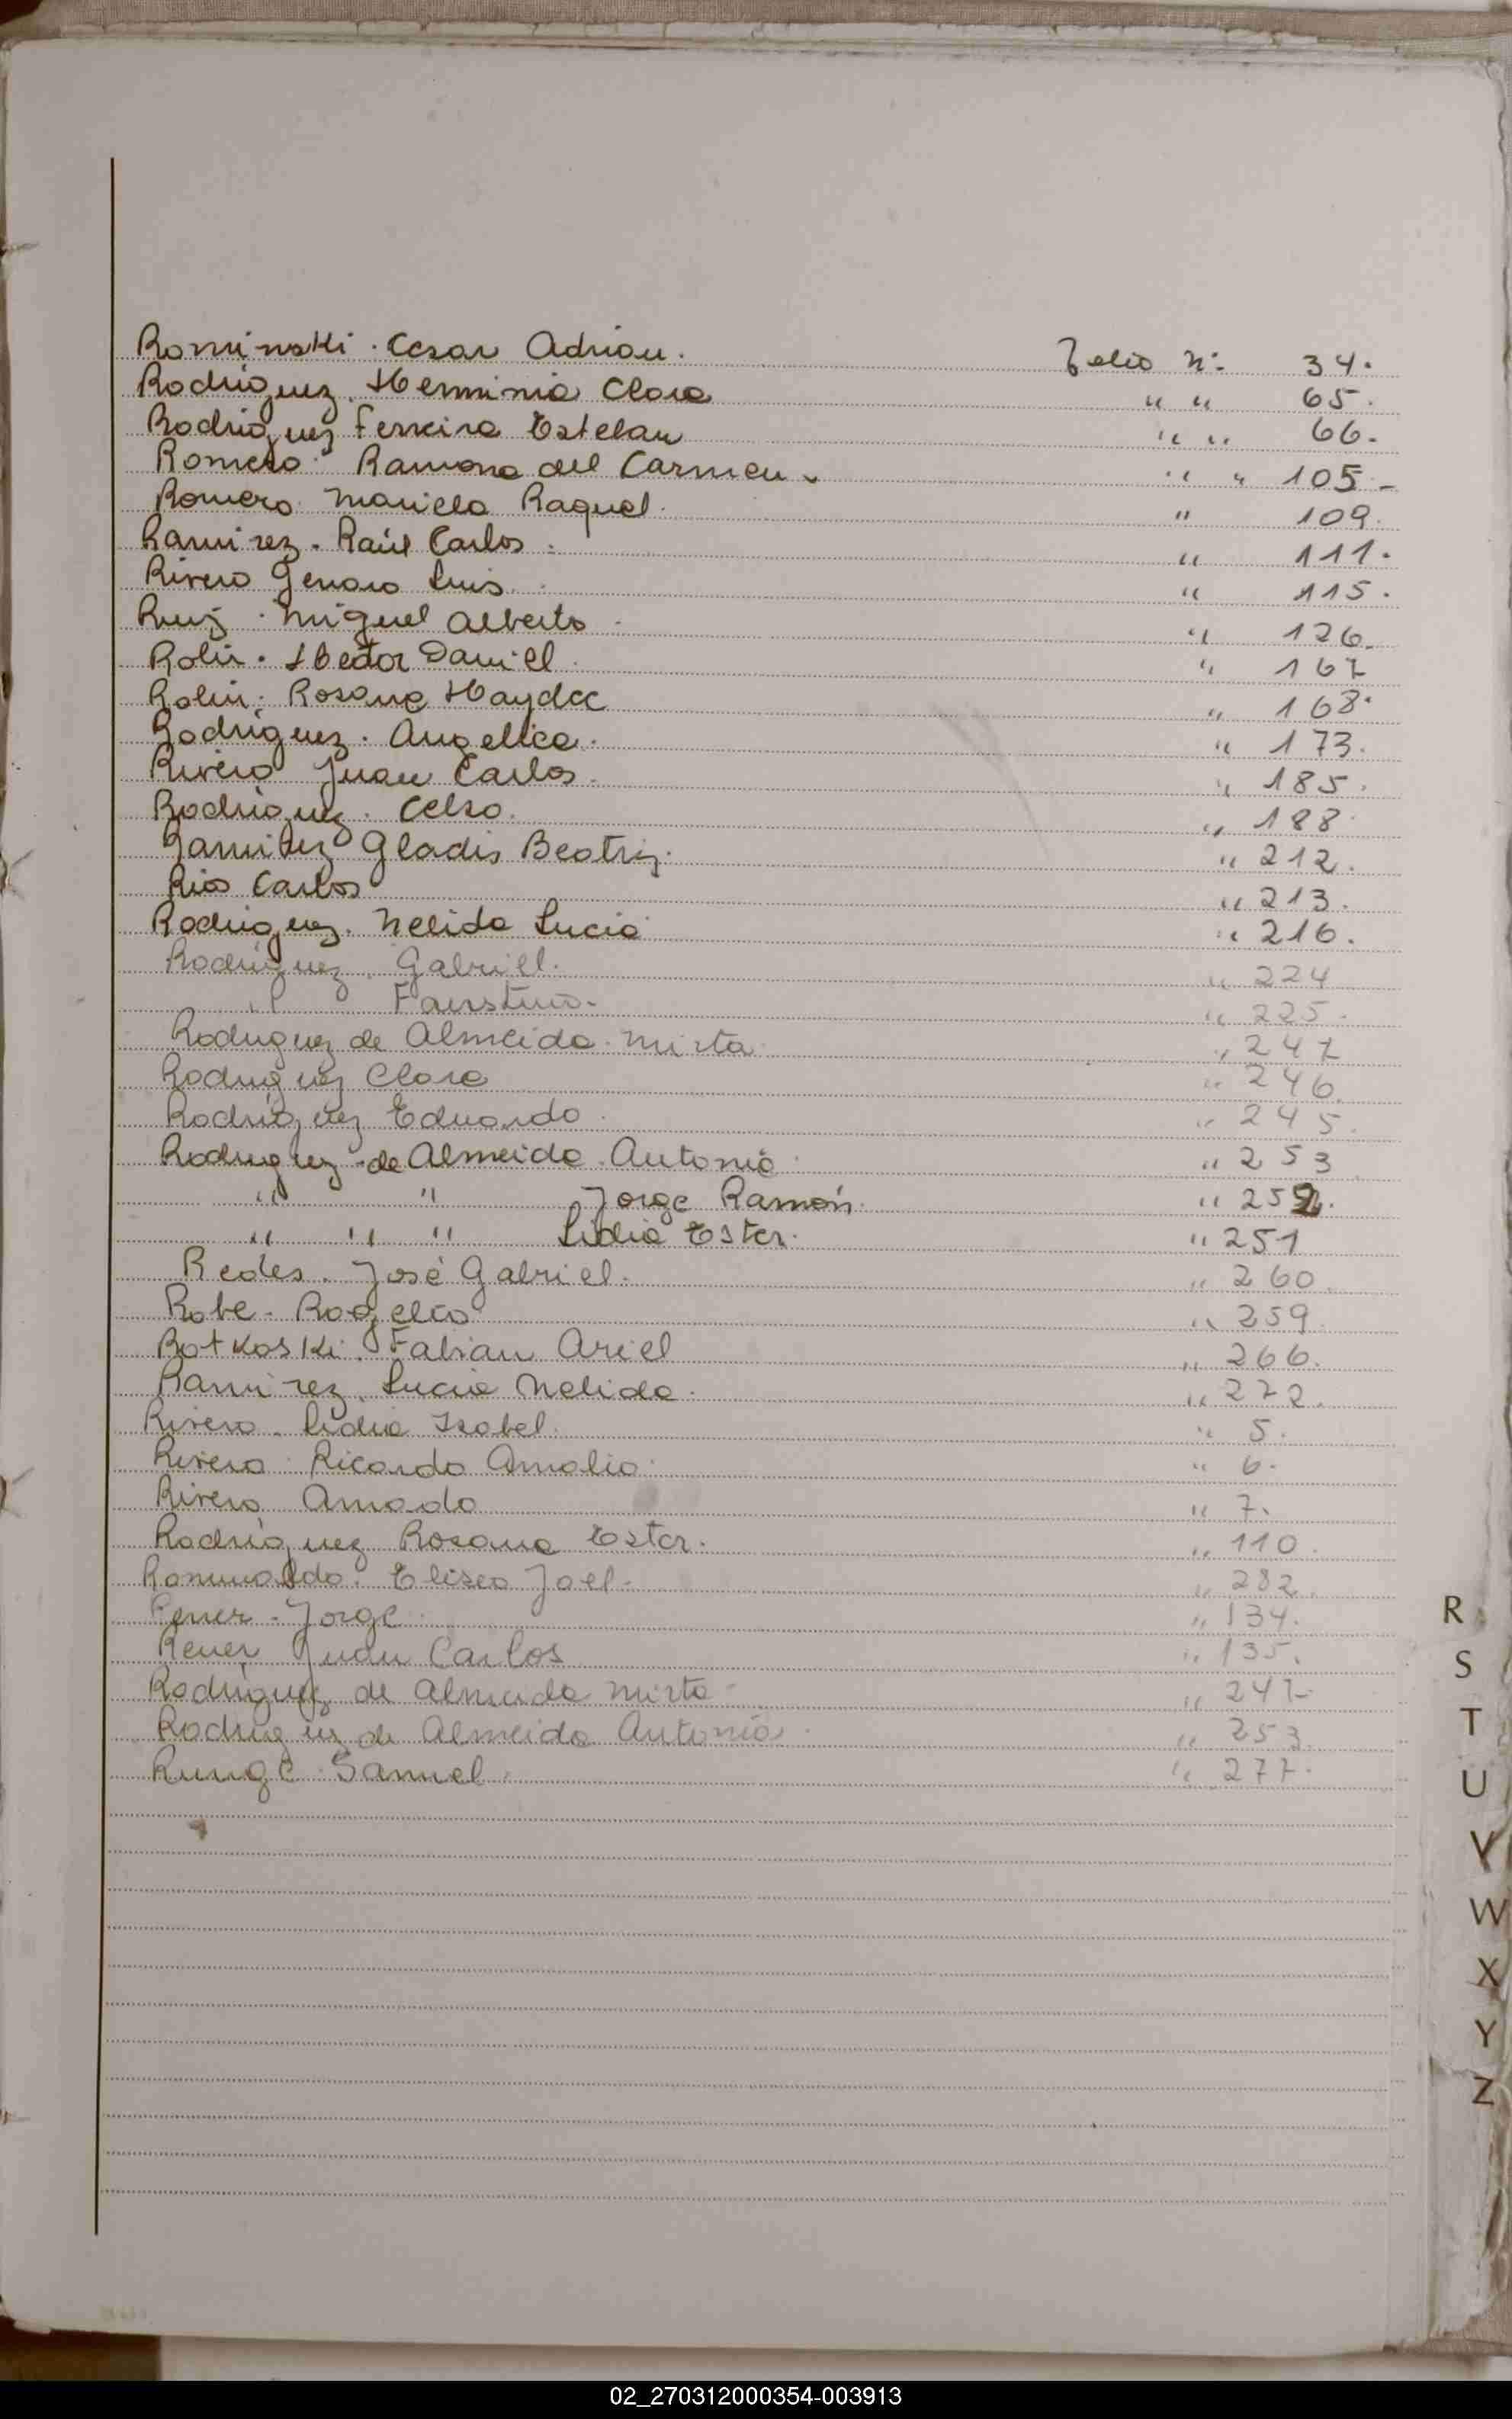 Rominski . Cesar Adrian. Folio N: 34.
Rodriguez. Herminia Clara " " 65.
Rodriguez Ferreira Estelan " " 66.
Romero Ramona del Carmen. " " 105-
Romero Mariela Raquel. " 109.
Ramirez. Raúl Carlos. " 111.
Rivero Genaro Luis. " 115.
Ruiz. Miguel Alberto. " 126.
Rolin. Hector Daniel. " 167
Rolin. Rosana Haydee " 168.
Rodriguez. Angelica. " 173.
Rivero Juan Carlos. " 185.
Rodriguez. Celso. " 188.
Ramirez Gladis Beatriz. " 212.
Rios Carlos " 213.
Rodriguez. Nelida Lucia " 216.
Rodriguez. Gabriel. " 224
" Faustino. " 225.
Rodriguez de Almeida. Mirta " 247
Rodriguez Clara " 246.
Rodriguez Eduardo. " 245.
Rodriguez de Almeida. Antonio " 253
" " Jorge Ramón. " 252.
" " " Lidia Ester. " 251
Redes. José Gabriel. " 260.
Robe. Rogelio " 259.
Rotkoski. Fabian Ariel " 266.
Ramirez. Lucia Nelida. " 272.
Rivero. Lidia Isabel. " 5.
Rivero Ricardo Amalio. " 6.
Rivero Amado " 7.
Rodriguez Rosana Ester. " 110.
Romualdo. Eliseo Joel. " 282.
Rener. Jorge. " 134.
Rener Juan Carlos " 135.
Rodriguez de Almeida Mirta " 247-
Rodriguez de Almeida Antonio. " 253.
Runge Samuel. " 277.
R
S
T
U
V
W
X
Y
Z
02_270312000354-003913